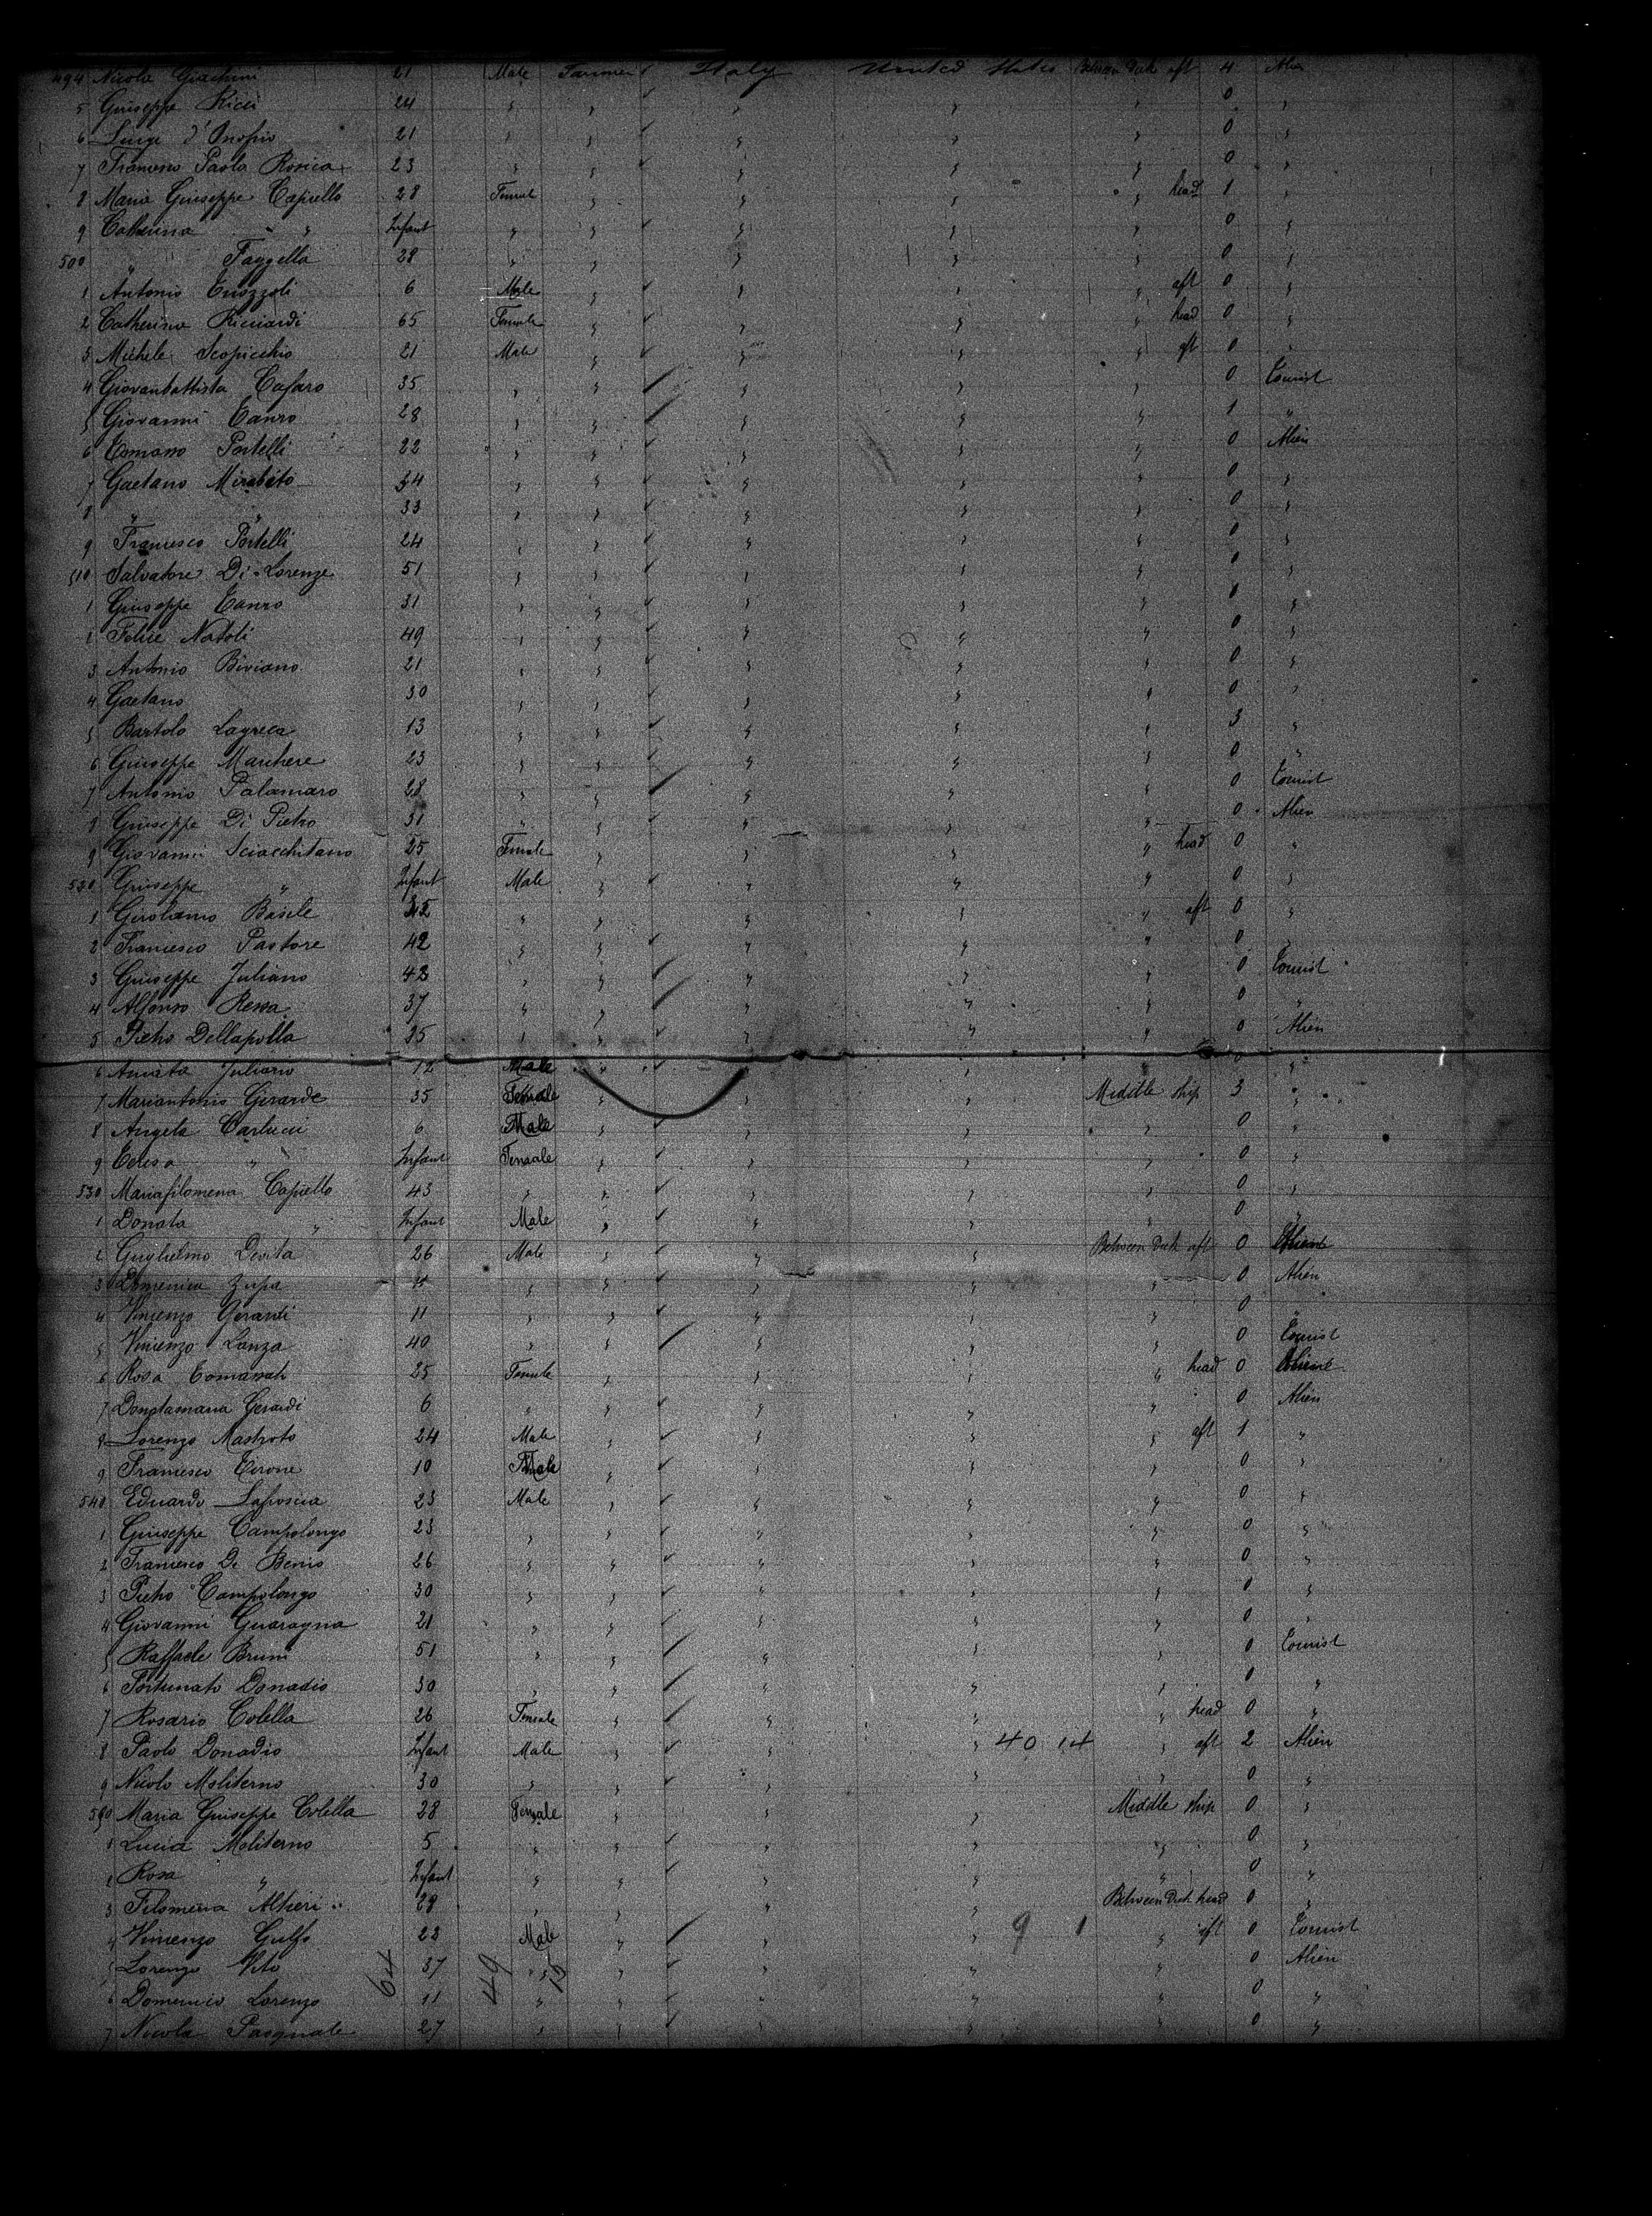 494 Nicola Giachini 21 Male Farmer Italy United States Between Deck aft 4 Alien
5 Giuseppe Ricci 24 " " " " " 0 "
6 Luigi d'Onofrio 21 " " " " " 0 "
7 Francesco Paolo Rosica 23 " " " " " 0 "
8 Maria Giuseppe Capiello 28 Female " " " " head 1 "
9 Catherina " " Infant " " " " " 0 "
500 " Faggella 28 " " " " " 0 "
1 Antonio 6 Male " " " " aft 0 "
2 Catherina Ricciardi 65 Female " " " " head 0 "
3 Michele Scopicchio 21 Male " " " " aft 0 "
4 Giovanbattista Cafaro 35 " " " " " 0 Tourist
5 Giovanni Tauro 28 " " " " " 1 "
6 Tomaso Portelli 22 " " " " " 0 Alien
7 Gaetano Mirabito 34 " " " " " 0 "
8 " " 33 " " " " " 0 "
9 Francesco Portelli 24 " " " " " 0 "
510 Salvatore Di Lorenzo 51 " " " " " 0 "
1 Giuseppe Tauro 31 " " " " " 0 "
2 Felice Natoli 49 " " " " " 0 "
3 Antonio Biviano 21 " " " " " 0 "
4 Gaetano 30 " " " " " 0 "
5 Bartolo Lagreca 13 " " " " " 3 "
6 Giuseppe Marchere 23 " " " " " 0 "
7 Antonio Palamaro 28 " " " " " 0 Tourist
8 Giuseppe Di Pietro 31 " " " " " 0 Alien
9 Giovanni Sciacchitano 25 Female " " " " head 0 "
520 Giuseppe " Infant Male " " " " 0 "
1 Girolamo Basile " " " " " aft 0 "
2 Francesco Pastore 42 " " " " " 0 "
3 Giuseppe Juliano 43 " " " " " 0 Tourist
4 Alfonso Ressa 37 " " " " " 0 "
5 Pietro Dellapolla 35 " " " " " 0 Alien
6 Amato Juliano 12 Male " " " 0 "
7 Mariantonia Girarde 35 Female " " " Middle ship 3 "
8 Angela Carlucci 6 Male " " " " 0 "
9 Teresa " " Infant Female " " " " 0 "
530 Mariafilomena Capiello 43 " " " " " 0 "
1 Donata " Infant Male " " " " 0 "
2 Guglielmo Devita 26 Male " " " Between Deck aft 0
3 Domenica Zupa " " " " " 0 Alien
4 Vincenzo Gerardi 11 " " " " " 0 "
5 Vincenzo Lanza 40 " " " " " 0 Tourist
6 Rosa 25 Female " " " " head 0
7 Donatamaria Gerardi 6 " " " " " 0 Alien
8 Lorenzo Mastroto 24 Male " " " " aft 1 "
9 Francesco Cirone 10 Male " " " " 0 "
540 Eduardo Laposcia 23 Male " " " " 0 "
1 Giuseppe Campolongo 23 " " " " " 0 "
2 Francesco De Benis 26 " " " " " 0 "
3 Pietro Campolongo 30 " " " " " 0 "
4 Giovanni Guaragna 21 " " " " " 0 "
5 Raffaele Bruni 51 " " " " " 0 Tourist
6 Fortunato Donadio 30 " " " " " 0 "
7 Rosario Colella 26 Female " " " " head 0 "
8 Paolo Donadio Infant Male " " " 40 14 " aft 2 Alien
9 Nicolo Moliterno 30 " " " " " 0 "
550 Maria Giuseppe Colella 28 Female " " " Middle ship 0 "
1 Lucia Moliterno 5 " " " " " 0 "
2 Rosa " Infant " " " " " 0 "
3 Filomena Altieri 28 " " " " Between Deck head 0 "
4 Vincenzo Gulfo 22 Male " " " 9 1 " aft 0 Tourist
5 Lorenzo Vito 37 " " " " " 0 Alien
6 Domenico Lorenzo 11 " " " " " 0 "
7 Nicola Pasquale 27 " " " " " 0 "
64 49 15